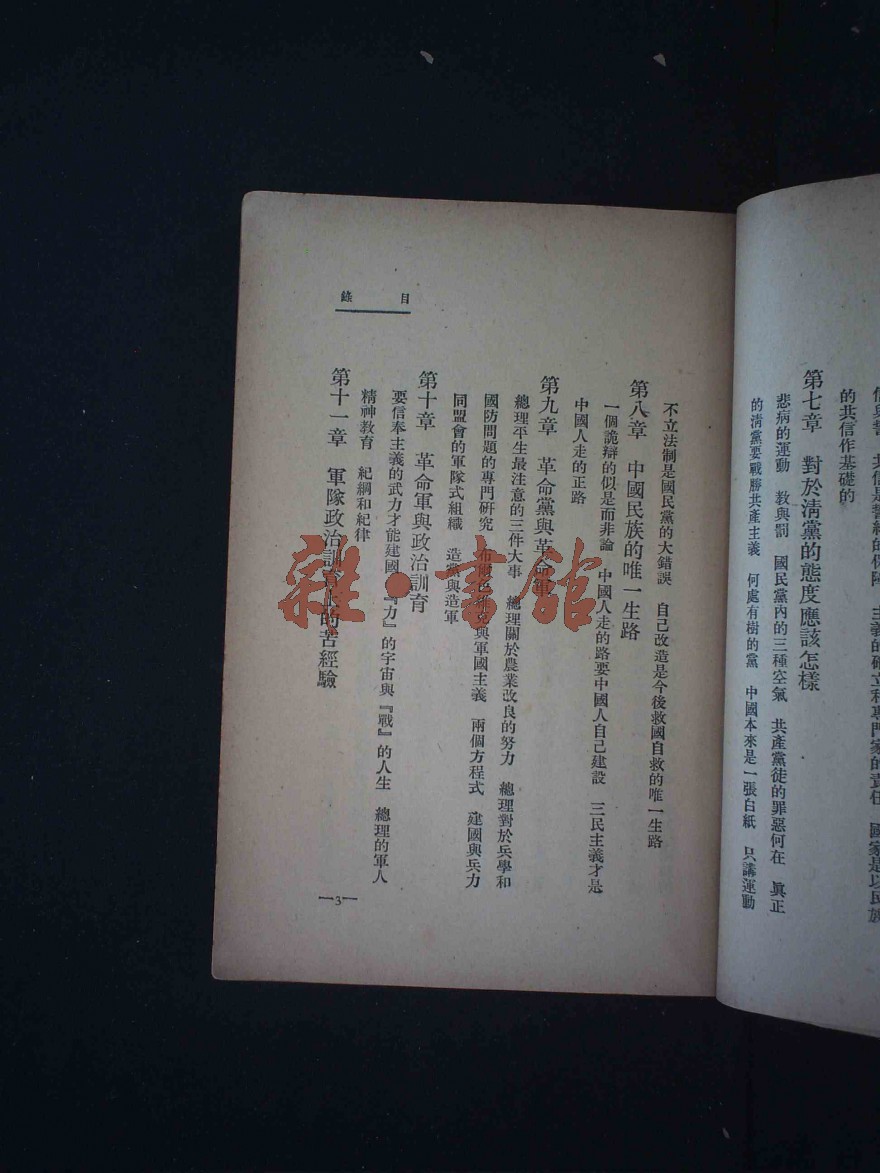 信與誓　共信是誓約的保障　主義的確立和專門家的責任　國家是以民族
的共信作基礎的
第七章　對於清黨的態度應該怎樣
悲病的運動　教與罰　國民黨內的三種空氣　共產黨徒的罪惡何在　眞正
的淸黨要戰勝共產主義　何處有樹的黨　中國本來是一張白紙　只講運動
目錄
不立法制是國民黨的大錯誤　自己改造是今後救國自救的唯一生路
第八章　中國民族的唯一生路
一個詭辯的似是而非論　中國人走的路要中國人自己建設　三民主義才是
中國人走的正路
第九章　革命黨與革命軍
總理平生最注意的三件大事　總理關於農業改良的努力　總理對於兵學和
國防問題的專門研究　布爾色維克與軍國主義　兩個方程式　建國與兵力
同盟會的軍隊式組織　造黨與造軍
第十章　革命軍與政治訓育
要信奉主義的武力才能建國　『力』的宇宙與『戰』的人生　總理的軍人
精神教育　紀綱和紀律
第十一章　軍隊政治訓育上的苦經驗
—3—
雜·書館